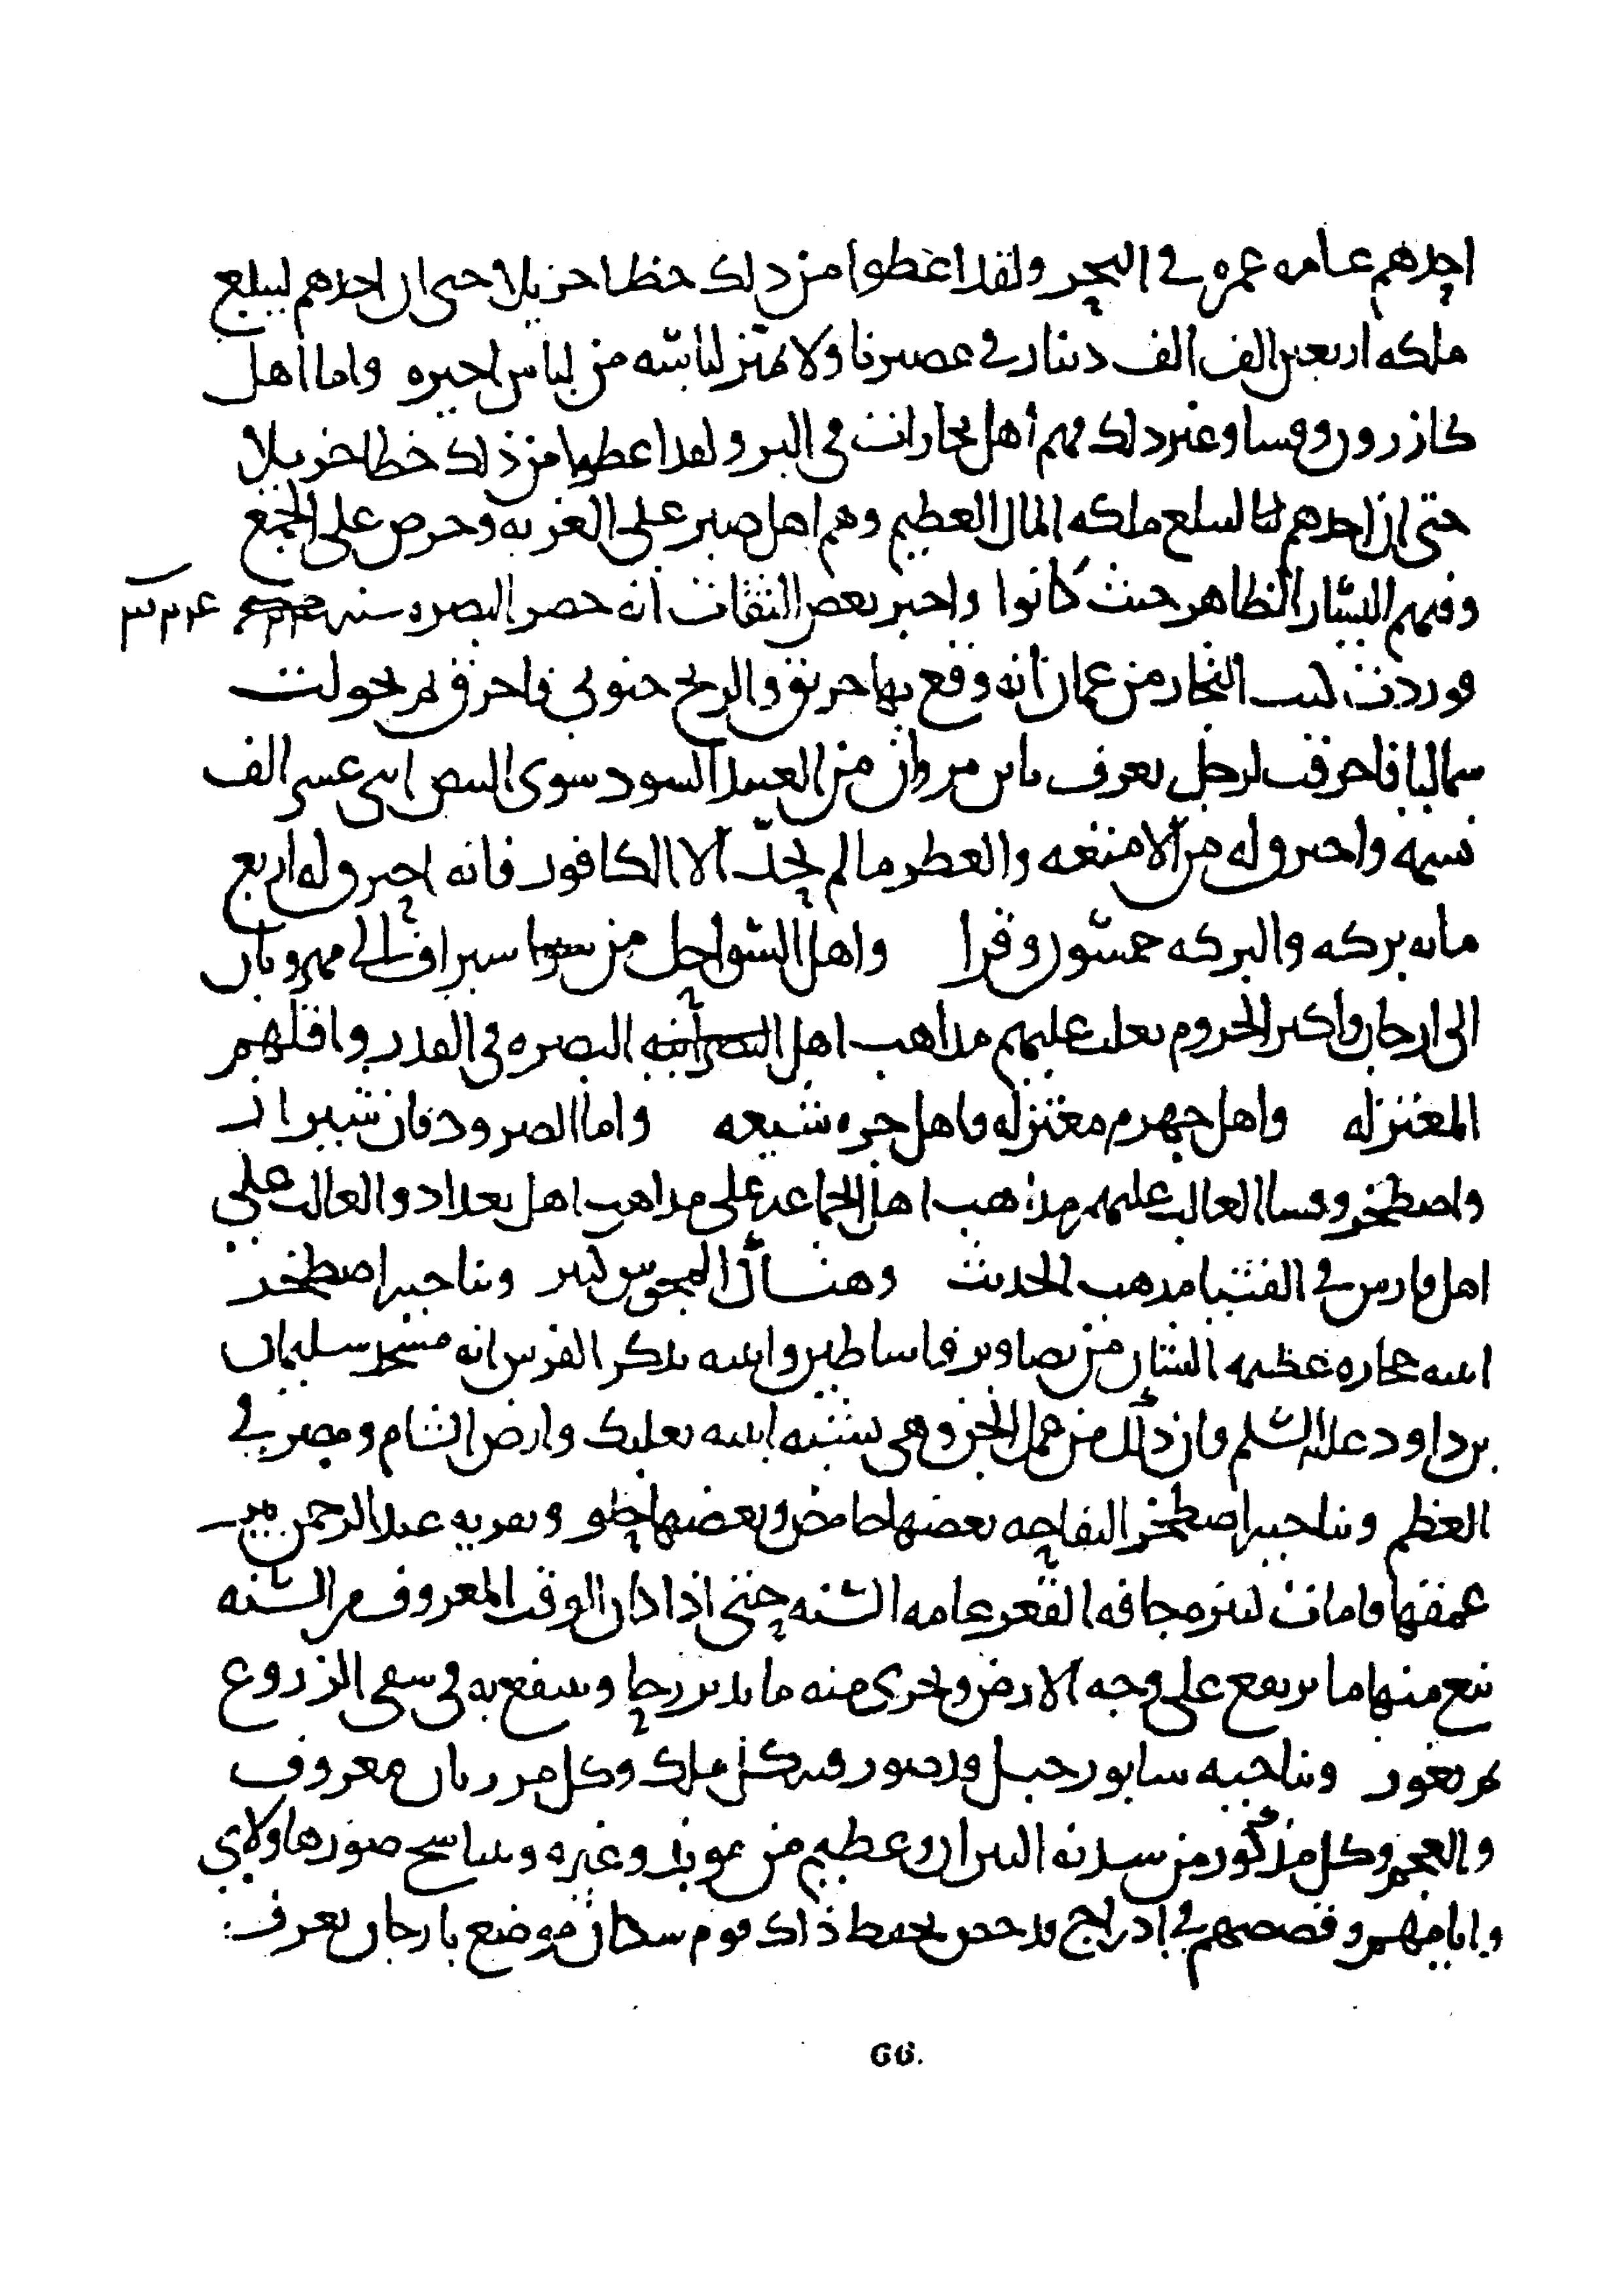 احدهم عامه عمره في البحر ولقد اعطوا من ذلك حظا جزيلا حتى ان احدهم ليبلغ
ملكه اربعين الف الف دينار في عصرنا ولا تميز لباسه من لباس اجيره واما اهل
كازرون وفسا وغير ذلك فهم أهل تجارات في البر ولقد اعطيا من ذلك حظا جزيلا
حتى ان احدهم ليبلغ ملكه المال العظيم وهم اهل صبر على الغربه وحرص على الجمع
وفيهم اليسار الظاهر حيث كانوا واخبر بعض الثقات أنه حضر البصره سنه
فوردت كتب التجار من عمان أنه وقع بها حريق والريح جنوبي فاحرق ثم تحولت
شماليا فاحرقت لرجل يعرف بابن مروان من العبيد السود سوى البيض اثنى عشر الف
نسمه واحترق له من الامتعه والعطر ما لم يحد الا الكافور فانه احترق له اربع
مايه بركه والبركه خمسون وقرا واهل السواحل من سيراف الى مهروبان
الى ارجان واكثر الجروم تغلب عليهم مذاهب اهل البصره في القدر واقلهم
المعتزله واهل جهرم معتزله واهل جره شيعه واما الصرود فان شيراز
واصطخر وفسا الغالب عليهم مذاهب اهل الجماعه على مذاهب اهل بغداد والغالب على
اهل فارس في الفتيا مذهب الحديث وهناك المجوس كثير وبناحيه اصطخر
ابنيه حجاره عظيمه الشان من تصاوير واساطير وابنيه يذكر الفرس انه مسجد سليمان
بن داود عليه السلم وان ذلك من عمل الجن وهي تشبه ابنيه بعلبك وارض الشام ومصر في
العظم وبناحيه اصطخر التفاحه بعضها حامض وبعضها حلو وبقريه عبد الرحمن بير
عمقها قامات كثيره جافه القعر عامه السنه حتى اذا كان الوقت المعروف من السنه
نبع منها ما يرتفع على وجه الارض ويجرى منه ما يدير رحا وينتفع به في سقى الزروع
ثم تغور وبناحيه سابور جبل قد صور فيه كل ملك وكل مرزبان معروف
والعجم وكل مذكور من سدنه النيران وعظيم من موبذ وغيره وتناسخ صور هاولاي
وايامهم وقصصهم في ادراج قد خص بحفظ ذاك قوم سكان موضع بارجان يعرف:
66.